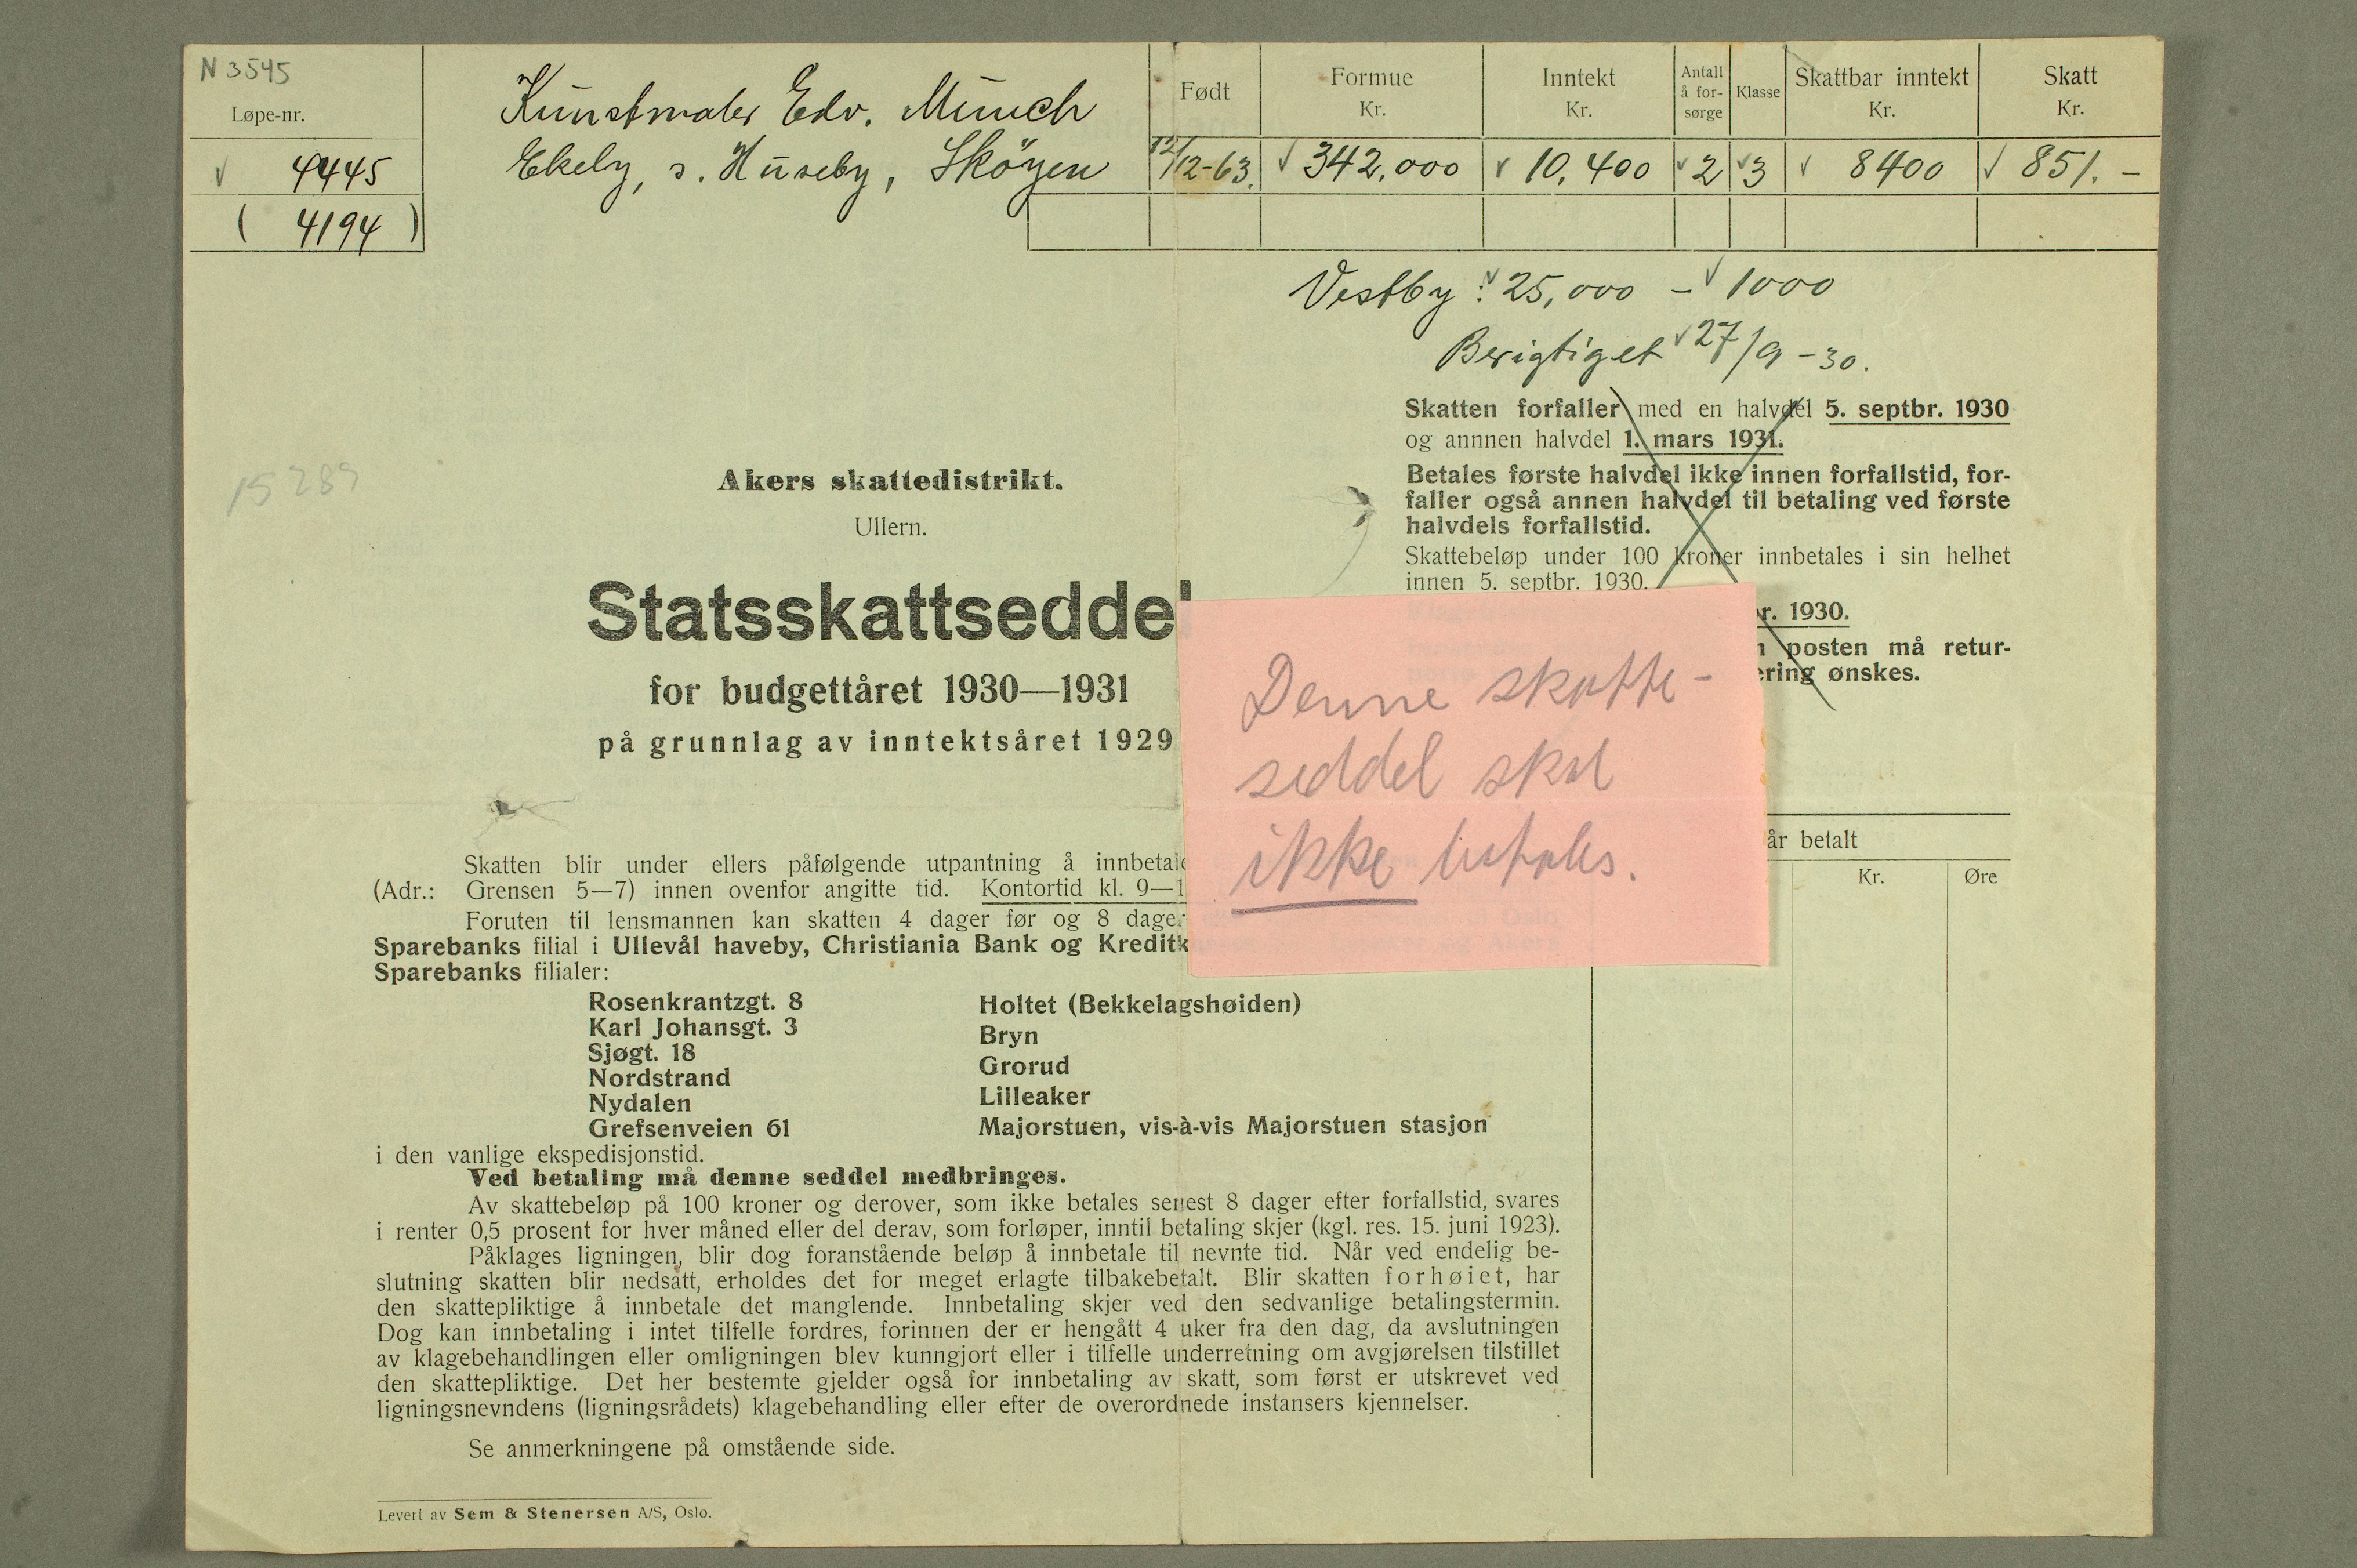 N 3545
Løpe-nr.
4445
( 4194 )
Kunstmaler Edv. Munch
Ekely, s. Huseby, Sköyen
Født
Formue
Kr.
Inntekt
Kr.
Antall
å for-
sørge
Klasse
Skattbar inntekt
Kr.
Skatt
Kr.
12/12-63.
342,000
10,400
2
3
8400
851.-
Vestby : 25,000 - 1000
Berigtiget 27/9-30.
Skatten forfaller med en halvdel 5. septbr. 1930
og annnen halvdel 1. mars 1931.
Betales første halvdel ikke innen forfallstid, for-
faller også annen halvdel til betaling ved første
halvdels forfallstid.
Skattebeløp under 100 kroner innbetales i sin helhet
innen 5. septbr. 1930.
r. 1930.
posten må retur-
ering ønskes.
15289
Akers skattedistrikt.
Ullern.
Statsskattseddel
for budgettåret 1930—1931
på grunnlag av inntektsåret 1929
Denne skatte-
seddel skal
ikke betales.
år betalt
Kr.
Øre
Skatten blir under ellers påfølgende utpantning å innbetale
(Adr.: Grensen 5—7) innen ovenfor angitte tid. Kontortid kl. 9—1
Foruten til lensmannen kan skatten 4 dager før og 8 dager
Sparebanks filial i Ullevål haveby, Christiania Bank og Kreditk
Sparebanks filialer:
Rosenkrantzgt. 8
Karl Johansgt. 3
Sjøgt. 18
Nordstrand
Nydalen
Grefsenveien 61
Holtet (Bekkelagshøiden)
Bryn
Grorud
Lilleaker
Majorstuen, vis-à-vis Majorstuen stasjon
i den vanlige ekspedisjonstid.
Ved betaling må denne seddel medbringes.
Av skattebeløp på 100 kroner og derover, som ikke betales senest 8 dager efter forfallstid, svares
i renter 0,5 prosent for hver måned eller del derav, som forløper, inntil betaling skjer (kgl. res. 15. juni 1923).
Påklages ligningen, blir dog foranstående beløp å innbetale til nevnte tid. Når ved endelig be-
slutning skatten blir nedsatt, erholdes det for meget erlagte tilbakebetalt. Blir skatten forhøiet, har
den skattepliktige å innbetale det manglende. Innbetaling skjer ved den sedvanlige betalingstermin.
Dog kan innbetaling i intet tilfelle fordres, forinnen der er hengått 4 uker fra den dag, da avslutningen
av klagebehandlingen eller omligningen blev kunngjort eller i tilfelle underretning om avgjørelsen tilstillet
den skattepliktige. Det her bestemte gjelder også for innbetaling av skatt, som først er utskrevet ved
ligningsnevndens (ligningsrådets) klagebehandling eller efter de overordnede instansers kjennelser.
Se anmerkningene på omstående side.
Levert av Sem & Stenersen A/S, Oslo.